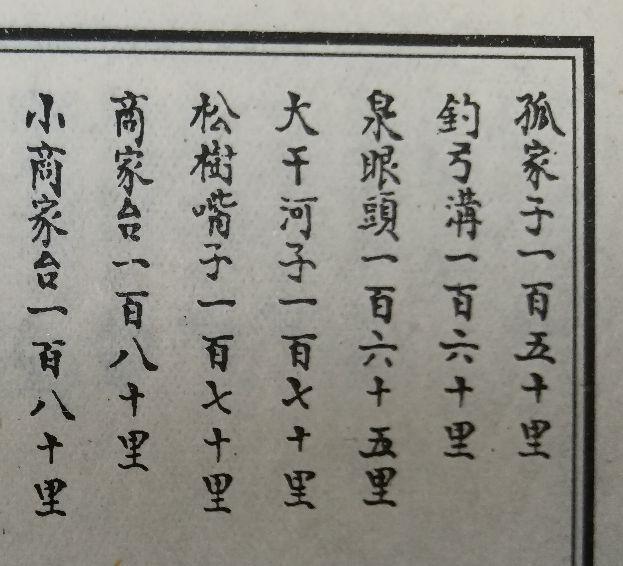 孤家子一百五十里
釣弓溝一百六十里
泉眼頭一百六十五里
大干河子一百七十里
松樹嘴子一百七十里
商家台一百八十里
小商家台一百八十里